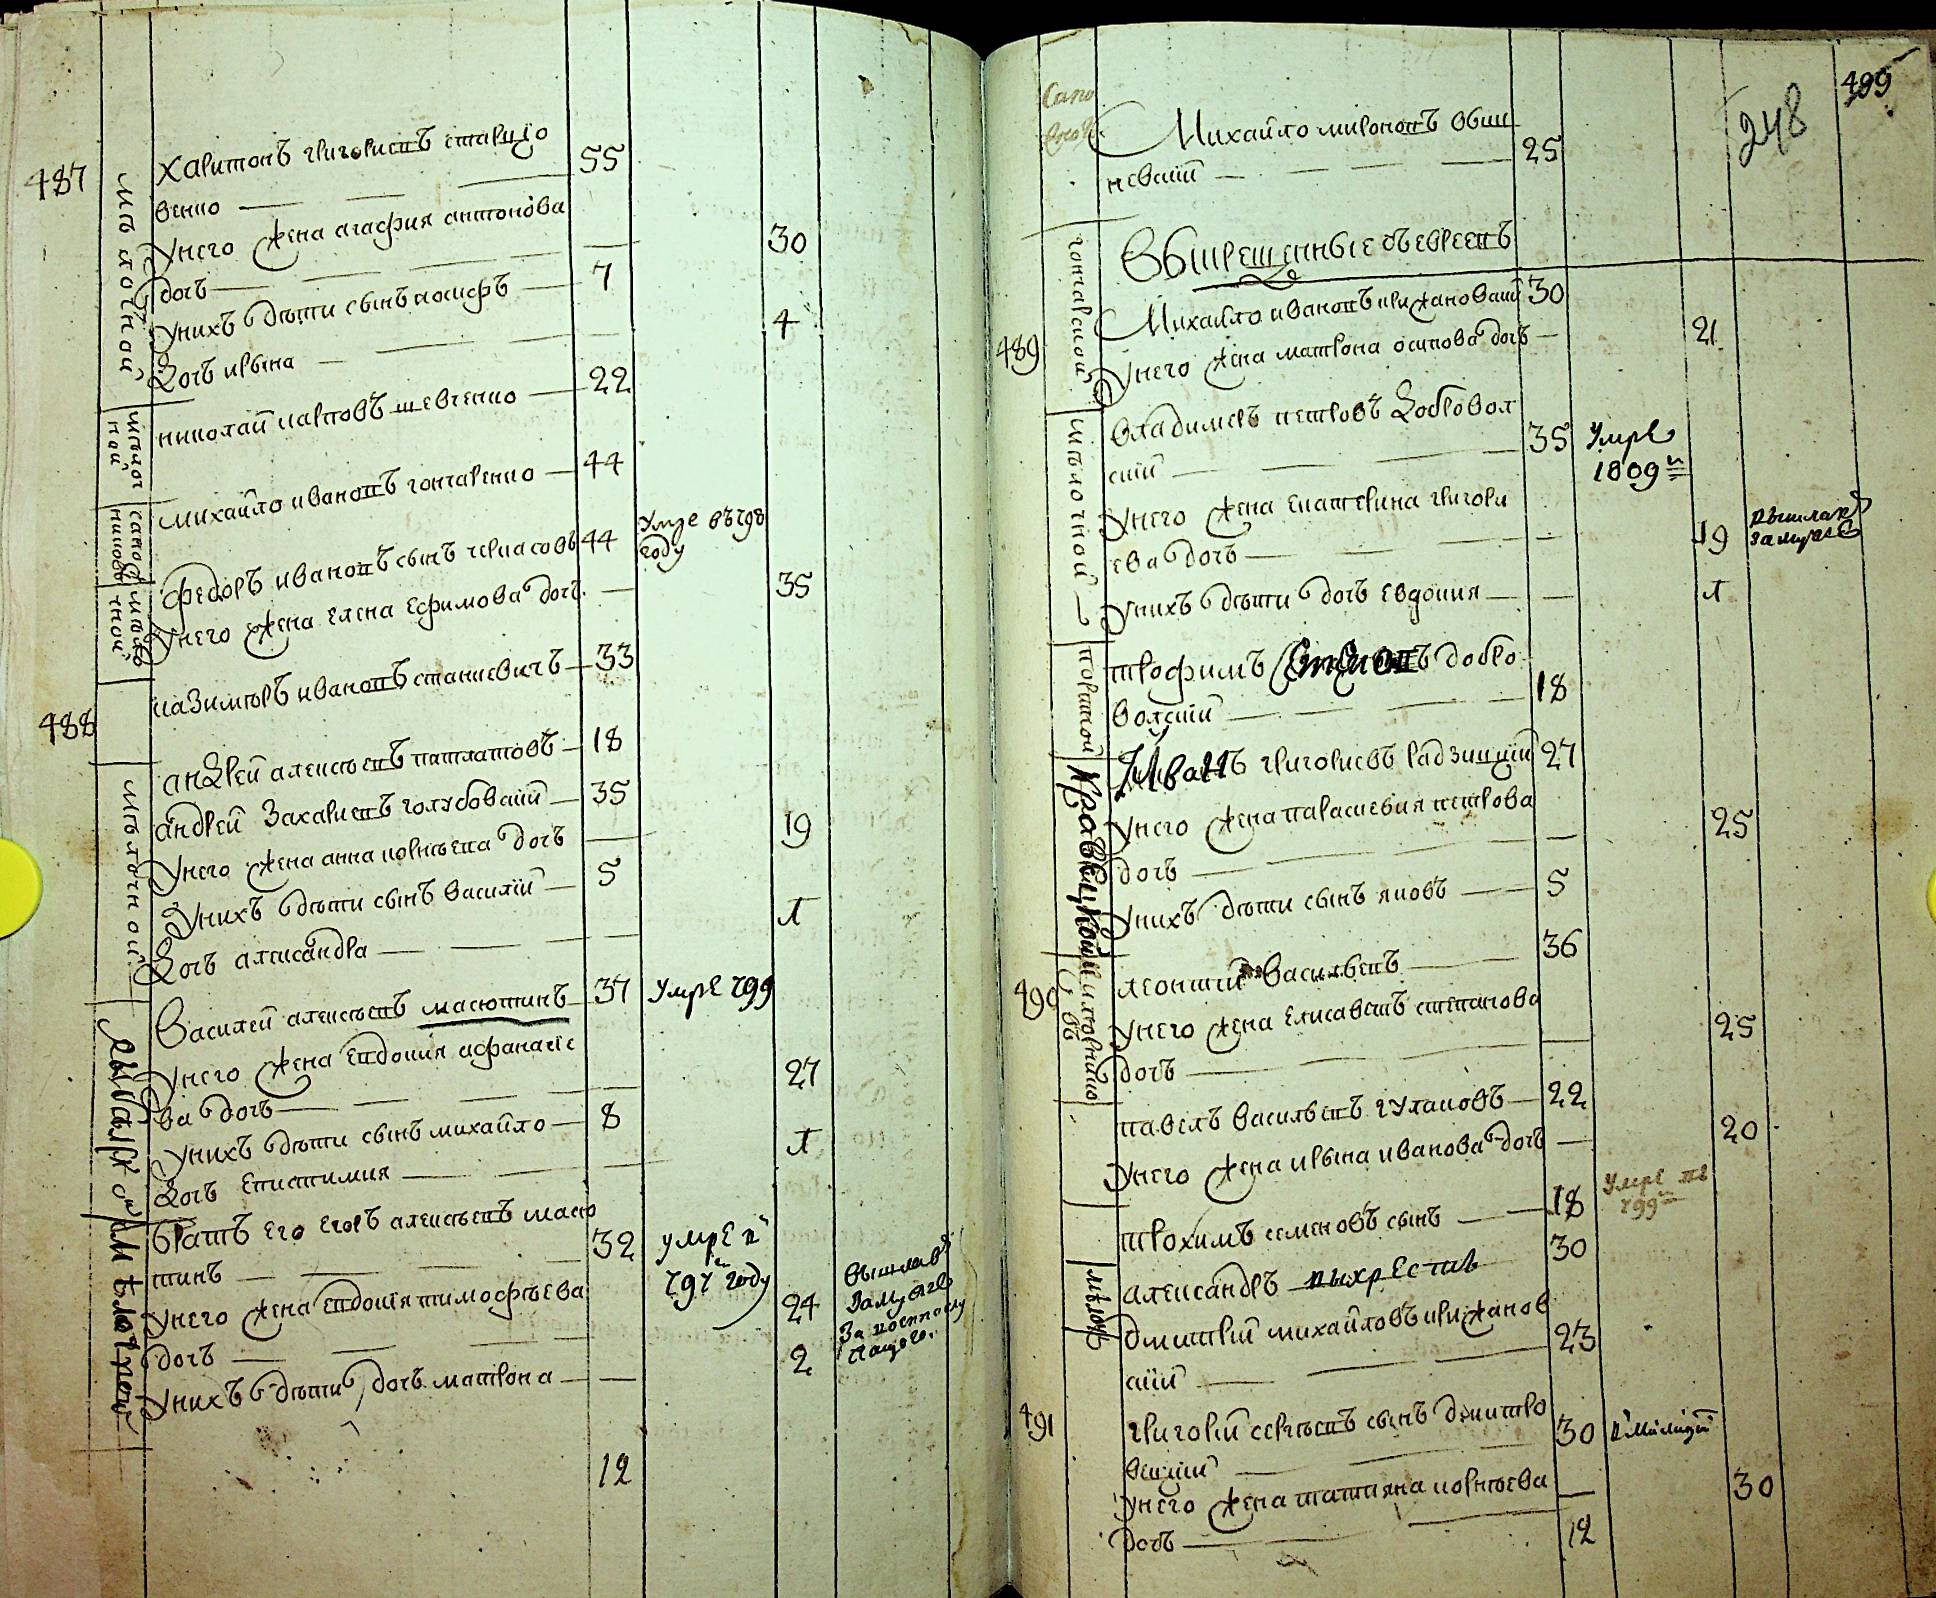 487
мѣлочной
Харитонъ григориевъ старцю
венко 55
Унего жена агафия антонова
дочъ 30
Унихъ дѣти сынъ иосифъ 7
Дочъ ирына 4
николай карповъ шевченко 22
михайло ивановъ гончаренко 44
федоръ ивановъ сынъ черкасовъ 44 Умре въ 798
году
Унего жена елена ефимова дочъ 35
488
казимѣръ ивановъ станкевичъ 33
андрей алексѣевъ паплатовъ 18
мѣлочной
андрей Захариевъ голубовский 35
Унего жена анна корнѣева дочъ 19
Унихъ дѣти сынъ василий 5
Дочъ александра 1
Василей алексѣевъ масютинъ 37 Умре 799
Унего жена евдокия афанасие
ва дочъ 27
Унихъ дѣти сынъ михайло 8
Дочъ Епистимия 1
братъ его егоръ алексѣевъ масю
тинъ 32 умре в
797 году
Унего жена евдокия тимофѣева
дочъ 24 вышла въ
замужъ
за
Унихъ дѣти дочъ матрона 2
12
499
248
Михайло мироновъ обши
невский 25
Выкрещенные зъ евреевъ
489
гончарской
Михайло ивановъ крижановский 30
Унего жена матрона осипова дочъ 21
мѣлочной
владимеръ петровъ Добровол
ский 35 Умре
1809
Унего жена екатерина григори
ева дочъ 19 вышла въ
замужъ
Унихъ дѣти дочъ евдокия 1
портной
трофимъ добро
волский 18
Кравецкой
Иванъ григориевъ радзицкий 27
Унего жена параскевия петрова
дочъ 25
Унихъ дѣти сынъ яковъ 5
490
леонтий васильевъ 36
Унего жена елисаветъ степанова
дочъ 25
павелъ васильевъ гулаковъ 22
Унего жена ирына иванова дочъ 20
трохимъ семеновъ сынъ 18 Умре въ
799
александръ выхрестъ 30
мѣлочъ
дмитрий михайловъ крижанов
ский 23
491
григорий сергѣевъ сынъ дмитро
вецкий 30
Унего жена татияна корнѣева
дочъ 30
12